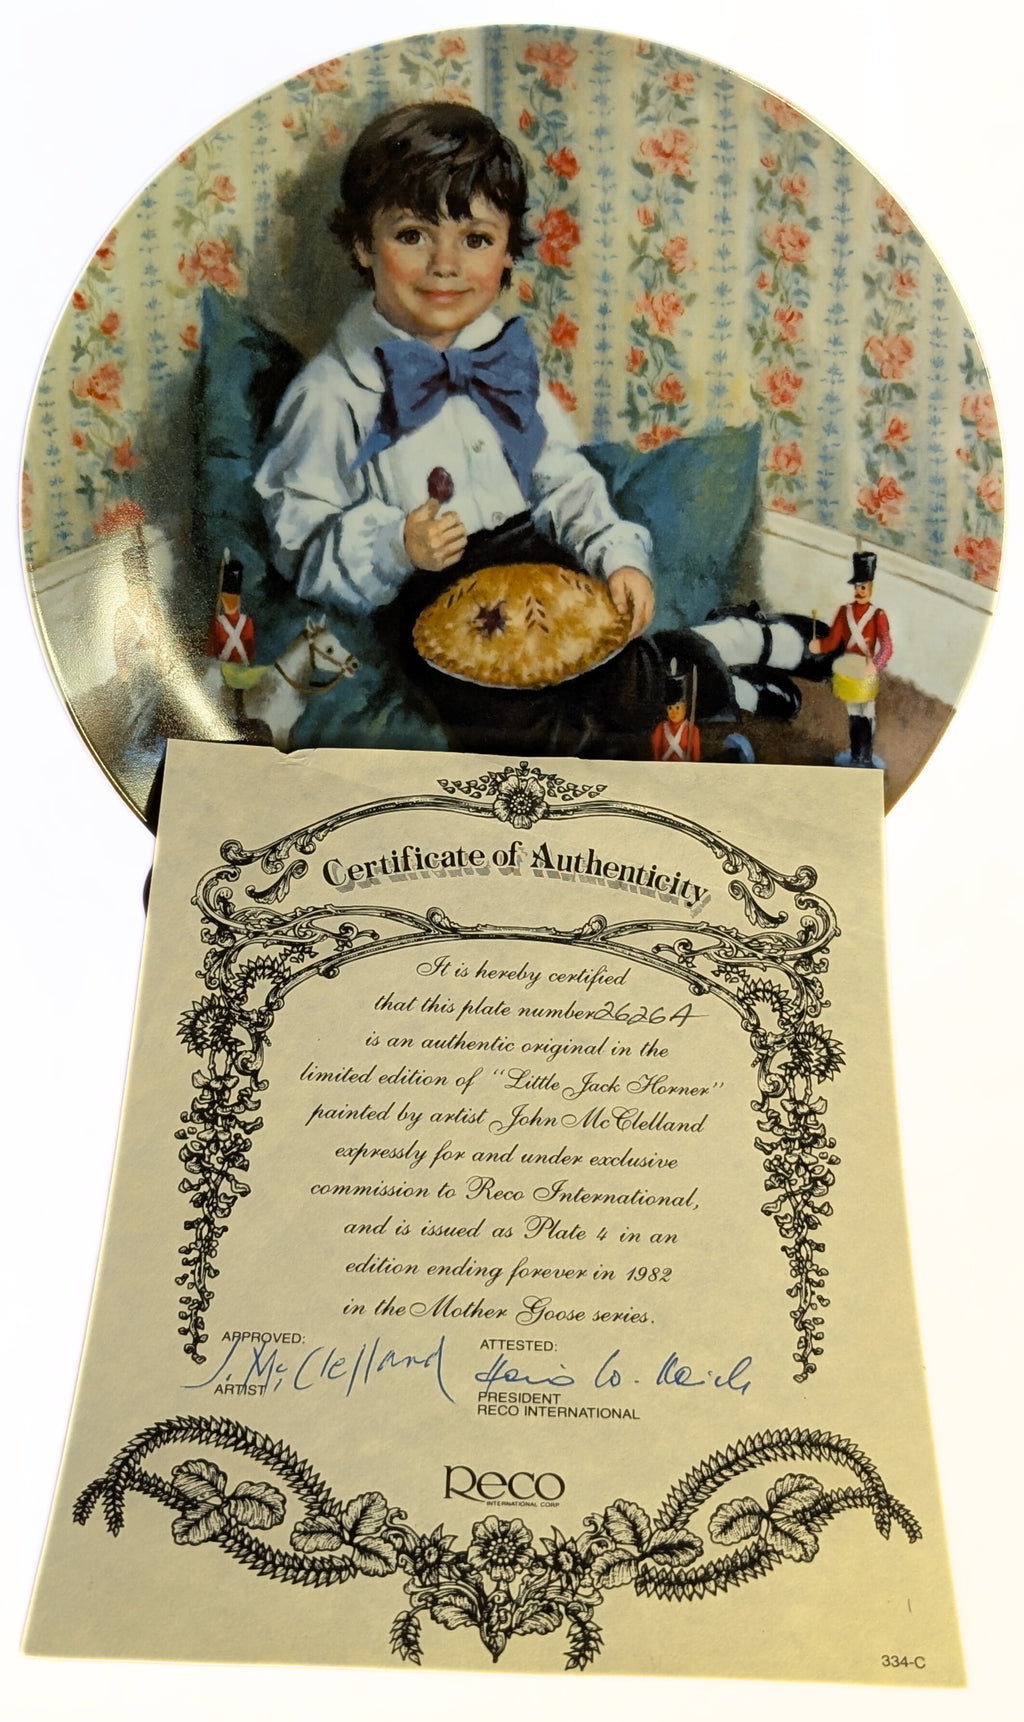 Certificate of Authenticity
It is hereby certified
that this plate number 2626A
is an authentic original in the
limited edition of "Little Jack Horner"
painted by artist John McClelland
expressly for and under exclusive
commission to Reco International,
and is issued as Plate 4 in an
edition ending forever in 1982
in the Mother Goose series.
APPROVED: ATTESTED:
J. McClelland
ARTIST PRESIDENT
RECO INTERNATIONAL
Reco
INTERNATIONAL CORP
334-C